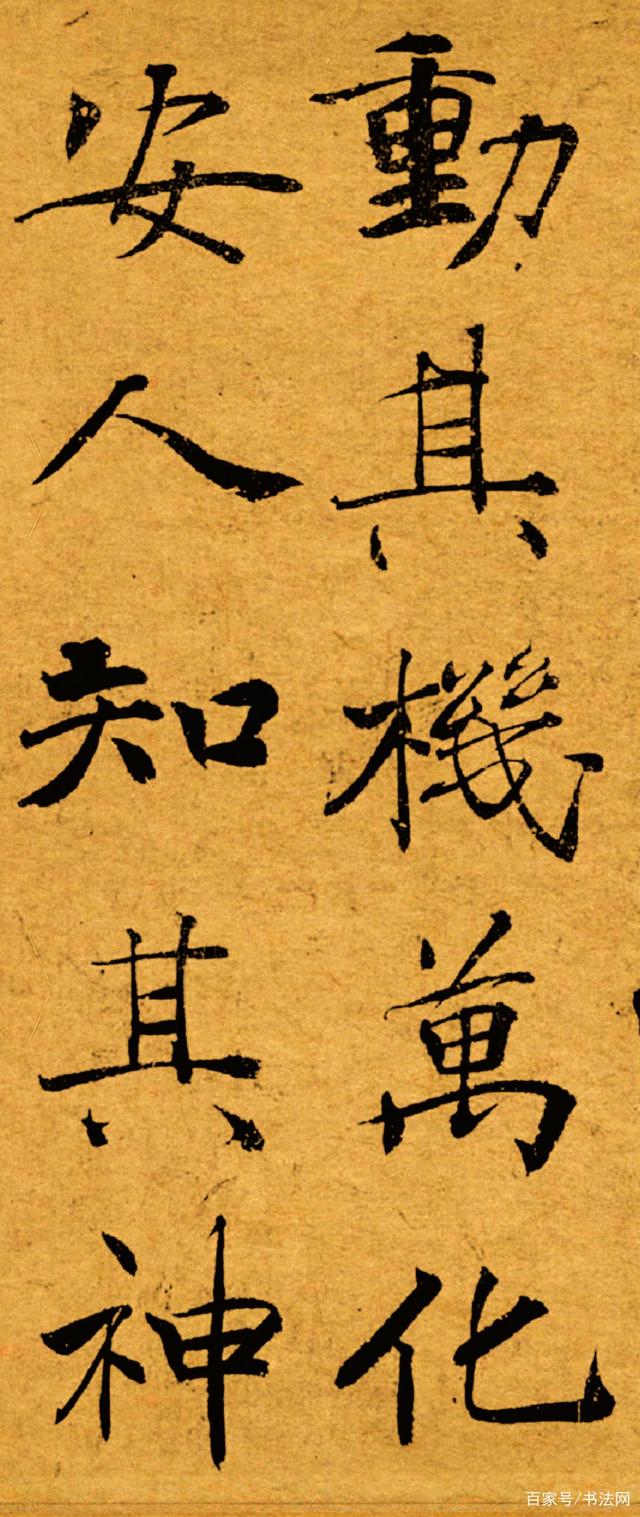 動其機萬化
安人知其神
百家号/书法网